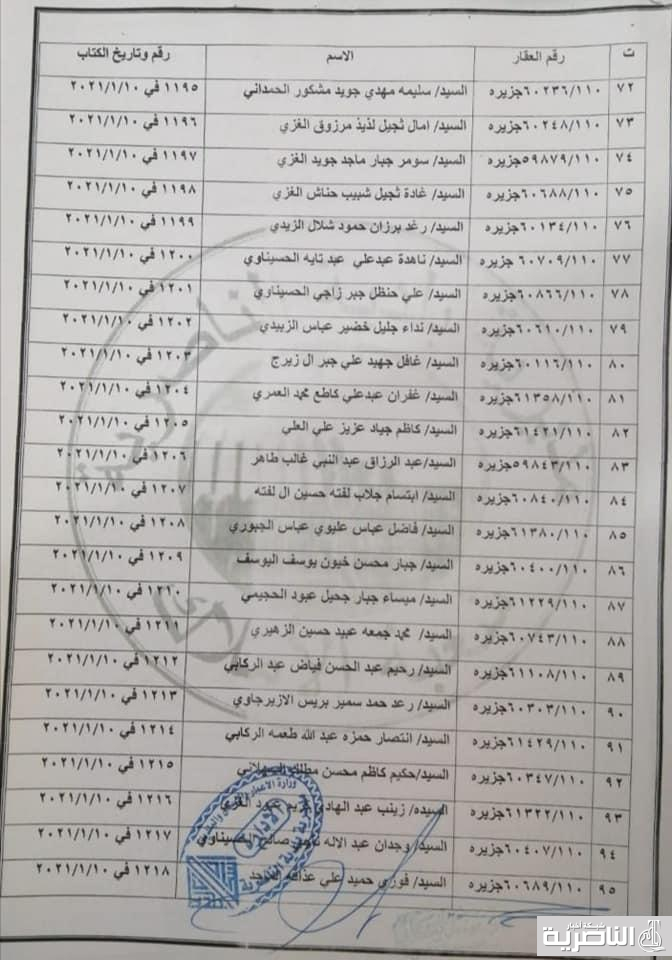 ت رقم العقار الاسم رقم وتاريخ الكتاب
٧٢ ٦٠٢٣٦/١١٠جزيره السيد/ سليمه مهدي جويد مشكور الحمداني ١١٩٥ في ٢٠٢١/١/١٠
٧٣ ٦٠٢٤٨/١١٠جزيره السيد/ امال ثجيل لذيذ مرزوق الغزي ١١٩٦ في ٢٠٢١/١/١٠
٧٤ ٥٩٨٧٩/١١٠جزيره السيد/ سومر جبار ماجد جويد الغزي ١١٩٧ في ٢٠٢١/١/١٠
٧٥ ٦٠٦٨٨/١١٠جزيره السيد/ غادة ثجيل شبيب حناش الغزي ١١٩٨ في ٢٠٢١/١/١٠
٧٦ ٦٠١٣٤/١١٠جزيره السيد/ رغد برزان حمود شلال الزيدي ١١٩٩ في ٢٠٢١/١/١٠
٧٧ ٦٠٧٠٩/١١٠ جزيره السيد/ ناهدة عبدعلي عبد تايه الحسيناوي ١٢٠٠ في ٢٠٢١/١/١٠
٧٨ ٦٠٨٦٦/١١٠جزيره السيد/ علي حنظل جبر زاجي الحسيناوي ١٢٠١ في ٢٠٢١/١/١٠
٧٩ ٦٠٦١٠/١١٠جزيره السيد/ نداء جليل خضير عباس الزبيدي ١٢٠٢ في ٢٠٢١/١/١٠
٨٠ ٦٠١١٦/١١٠جزيره السيد/ غافل جهيد علي جبر ال زيرج ١٢٠٣ في ٢٠٢١/١/١٠
٨١ ٦١٣٥٨/١١٠جزيره السيد/ غفران عبدعلي كاطع محمد العمري ١٢٠٤ في ٢٠٢١/١/١٠
٨٢ ٦١٤٢١/١١٠جزيره السيد/ كاظم جياد عزيز علي العلي ١٢٠٥ في ٢٠٢١/١/١٠
٨٣ ٥٩٨٤٣/١١٠جزيره السيد/عبد الرزاق عبد النبي غالب طاهر ١٢٠٦ في ٢٠٢١/١/١٠
٨٤ ٦٠٨٤٠/١١٠جزيره السيد/ ابتسام جلاب لفته حسين ال لفته ١٢٠٧ في ٢٠٢١/١/١٠
٨٥ ٦١٣٨٠/١١٠جزيره السيد/ فاضل عباس عليوي عباس الجبوري ١٢٠٨ في ٢٠٢١/١/١٠
٨٦ ٦٠٤٠٠/١١٠جزيره السيد/ جبار محسن خيون يوسف اليوسف ١٢٠٩ في ٢٠٢١/١/١٠
٨٧ ٦١٢٢٩/١١٠جزيره السيد/ ميساء جبار جحيل عبود الحجيمي ١٢١٠ في ٢٠٢١/١/١٠
٨٨ ٦٠٧٤٣/١١٠جزيره السيد/ محمد جمعه عبيد حسين الزهيري ١٢١١ في ٢٠٢١/١/١٠
٨٩ ٦١١٠٨/١١٠جزيره السيد/ رحيم عبد الحسن فياض عبد الركابي ١٢١٢ في ٢٠٢١/١/١٠
٩٠ ٦٠٣٠٣/١١٠جزيره السيد/ رعد حمد سمير بريس الازيرجاوي ١٢١٣ في ٢٠٢١/١/١٠
٩١ ٦١٤٢٩/١١٠جزيره السيد/ انتصار حمزه عبد الله طعمه الركابي ١٢١٤ في ٢٠٢١/١/١٠
٩٢ ٦٠٣٤٧/١١٠جزيره السيد/حكيم كاظم محسن ١٢١٥ في ٢٠٢١/١/١٠
٩٣ ٦١٣٢٢/١١٠جزيره السيده/ زينب عبد الهادي الغزي ١٢١٦ في ٢٠٢١/١/١٠
٩٤ ٦٠٤٠٧/١١٠جزيره السيد/ وجدان عبد الاله الحسيناوي ١٢١٧ في ٢٠٢١/١/١٠
٩٥ ٦٠٦٨٩/١١٠جزيره السيد/ فوزي حميد علي ١٢١٨ في ٢٠٢١/١/١٠
الادارة
شبكة اخبار
الناصرية